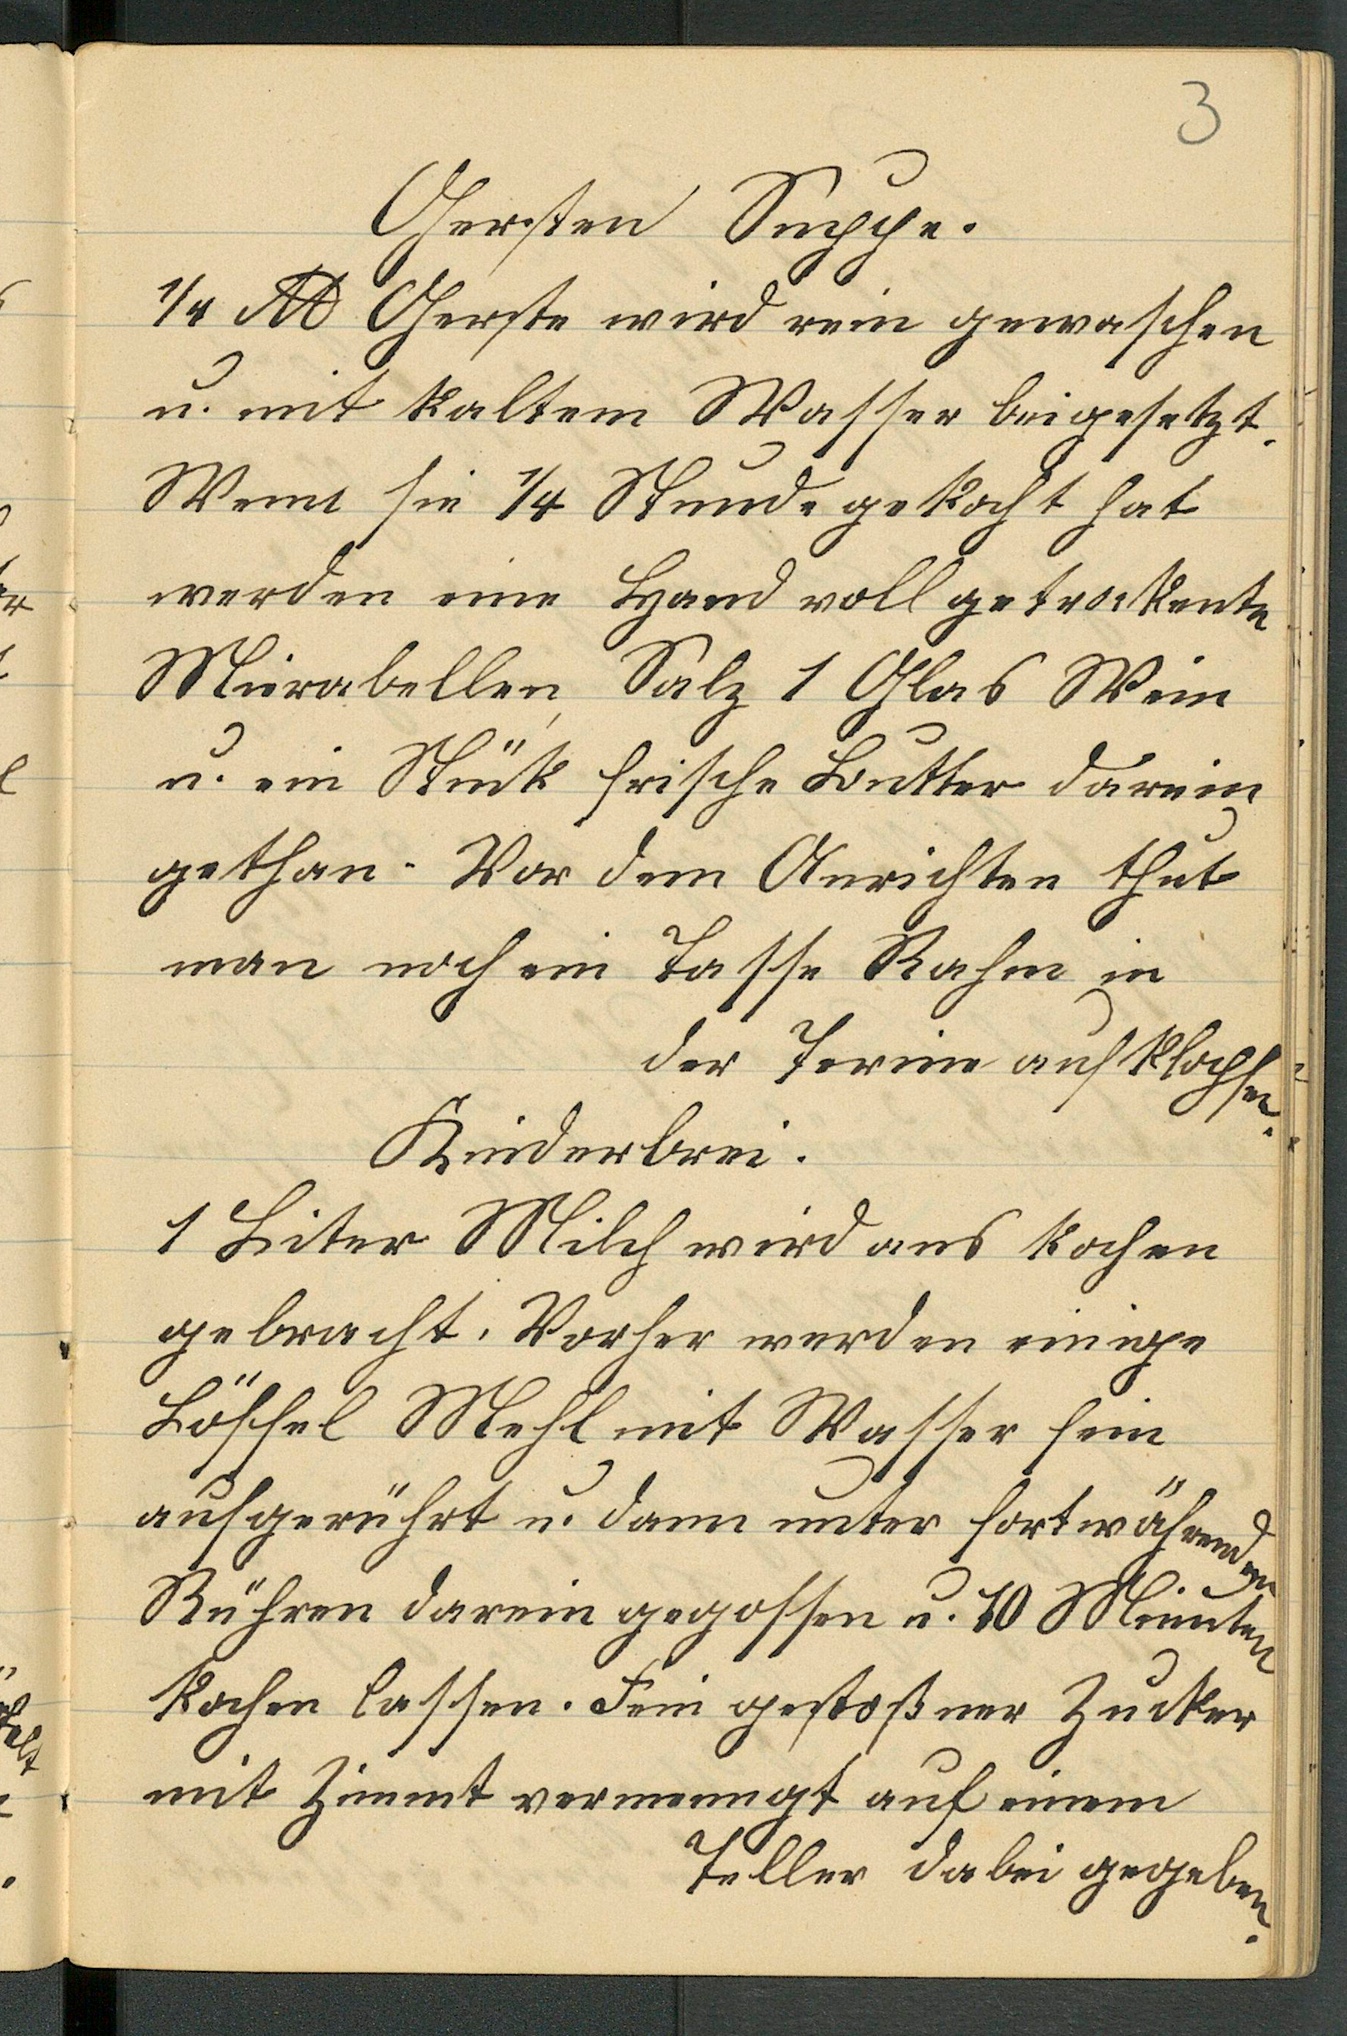 3
Gersten Suppe.
1/4 ℔ Gerste wird rein gewaschen
u. mit kaltem Wasser beigesetzt.
Wenn sie 1/4 Stunde gekocht hat
werden eine Hand voll getrockente
Mirabellen, Salz 1 Glas Wein
u. ein Stück frische Butter darein
gethan. Vor dem Anrichten thut
man noch ein Tasse Rahm in
der Terine aufklopfen.
Kinderbrei.
1 Liter Milch wird ans kochen
gebracht. Vorher werden einige
Löffel Mehl mit Wasser fein
aufgerührt u. dann unter fortwährenden
Rühren darein gegossen u. 10 Minuten
kochen lassen. Fein gestoßner Zucker
mit Zimmt vermenngt auf einem
Teller dabei gegeben.